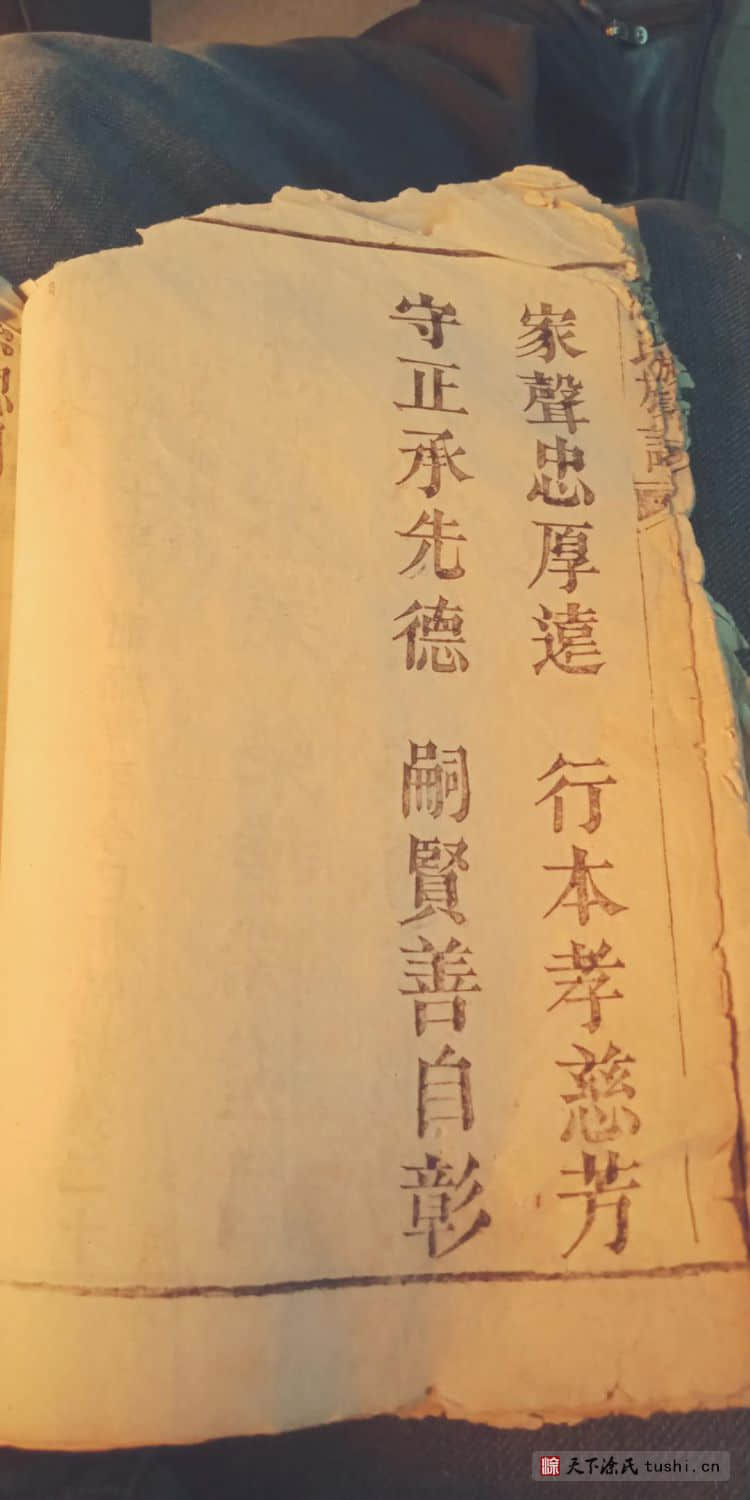 家聲忠厚遠 行本孝慈芳
守正承先德 嗣賢善自彰
涂 天下涂氏 tushi.cn